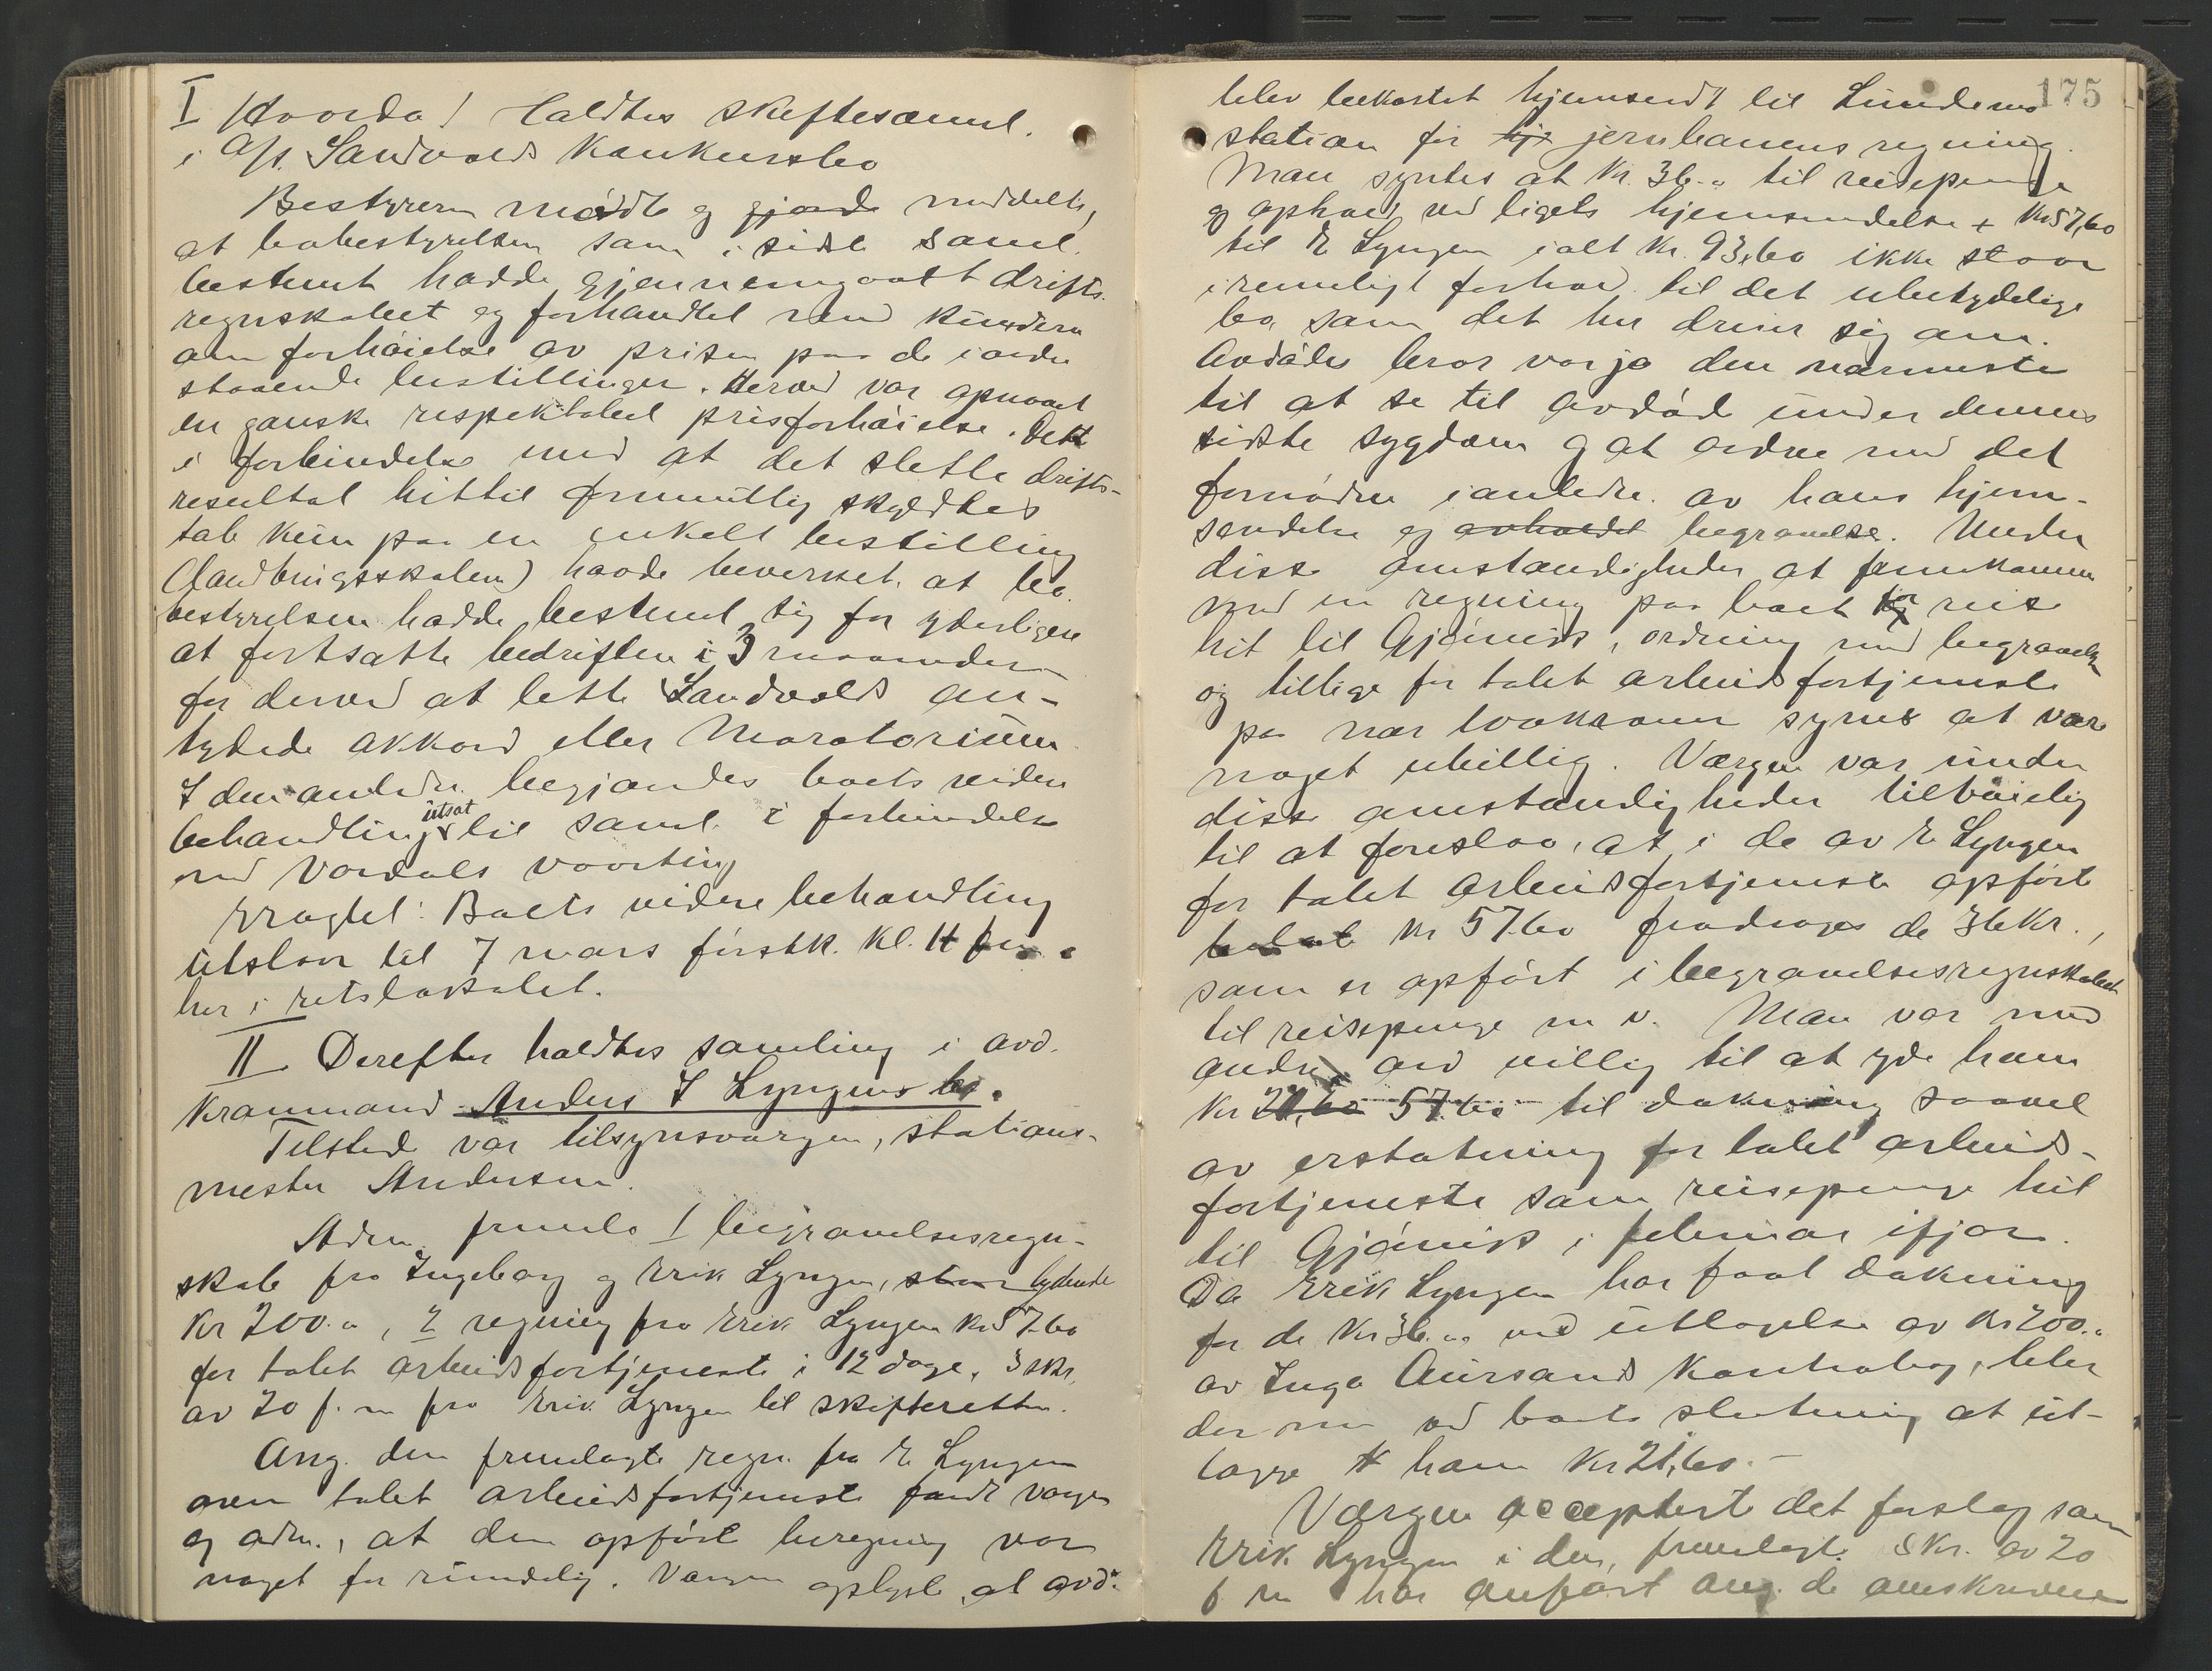 I Hvorda! Holdtes skiftesaml.
i A/s. Sandvolds Konkursbo
Bestyreren mødte og gjorde meddelte,
at bobestyrelsen som i sidste saml.
bestemt hadde gjennemgaatt drifts-
regnskabet og forhandlet med kunderne
om forhøielse av prisen paa de i ordre
staaende bestillinger. Herved var opnaaet
en ganske respektabel prisforhøielse. Dette
i forbindelse med at det slette drifts-
resultat hittil formentlig skyldtes
tab kun paa en enkelt bestilling
(landbrugsskolen) havde bevirket, at bo-
bestyrelsen hadde bestemt sig for yderligere
at fortsætte bedriften i 3 maaneder
for derved at lette Sandvolds an-
tydede akkord eller Moratorium
I den anledn. begjæredes boets videre
behandling utsat til saml. i forbindelse
med Vardals vaarting
Eragtet: Boets videre behandling
utstaar til 7 mars førstk. kl. 11 fm.
her i retslokalet.
II Derefter holdtes samling i avd.
Kranmand Anders J Lyngens bo.
Tilstede var tilsynsværgen, stations-
mester Andersen.
Adm. freml. 1 begravelsesregn-
skab fra Ingeborg og Erik Lyngen, stor lydende
Kr 200.", 2 regning fra Erik Lyngen Kr 57.60
for tabt arbeidsfortjeneste i 12 dage, 3 skr.
av 20 f. m fra Erik Lyngen til skifteretten.
Ang. den fremlagte regn. fra E. Lyngen
over tabt arbeidsfortjeneste fandt værgen
og adm., at den opførte beregning var
noget for rundelig. Værgen oplyste, at avd.
175
blev bekostet hjemsendt til Lundemo
station for hj jernbanens regning.
Man syntes at Kr. 36." til reisepenge
og ophold ved ligets hjemsendelse + Kr 57,60
til E Lyngen ialt Kr. 93,60 ikke staar
i rimeligt forhold til det ubetydelige
bo, som det her dreier sig om.
Avdødes bror var jo den nærmeste
til at se til avdøde under dennes
sidste sygdom og at ordne med det
fornødne i anledn. av hans hjem-
sendelse og avholdet begravelse. Under
disse omstændigheder at fremkomme
med en regning paa boet for reise
hit til Gjøvik, ordning med begravelse
og tillige for tabt arbeidsfortjeneste
paa nær 100 kroner synes at være
noget ubillig. Værgen var under
disse omstændigheder tilbøielig
til at foreslaa, at i de av E Lyngen
for tabt arbeidsfortjeneste opført
beløb Kr 57.60 fradrages de 36 Kr.,
som er opført i begravelsesregnskabet
til reisepenge m v. Man var med
andre ord villig til at yde ham
Kr 21,60 57.60 til dækning saavel
av erstatning for tabt arbeids-
fortjeneste som reisepenge hit
til Gjøvik i februar ifjor.
Da Erik Lyngen har faat dækning
for de Kr 36." ved utlæggelse av Kr 200."
av Inga Aursands kontrabog, blev
der nu ved boets slutning at ut-
lægge ham Kr 21,60.-
Værgen accepterte det forslag som
Erik Lyngen i den fremlagte Skr. av 20
f m har anført ang. de omskrevne